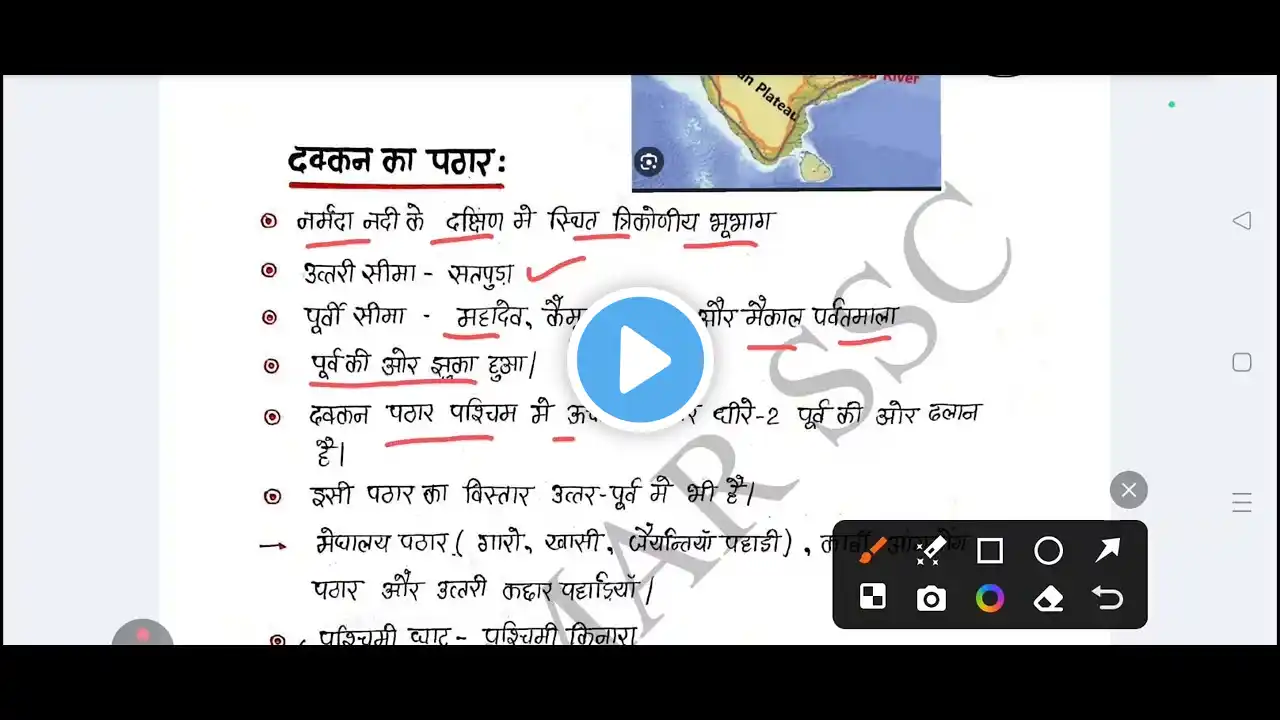 an Plateau
River
दक्कन का पठार:
नर्मदा नदी के दक्षिण मे स्थित त्रिकोणीय भूभाग
उत्तरी सीमा - सतपुड़ा
पूर्वी सीमा - महादेव, और मैकाल पर्वतमाला
पूर्व की ओर झुका हुआ।
दक्कन पठार पश्चिम मे धीरे-2 पूर्व की ओर ढलान
है।
इसी पठार का विस्तार उत्तर-पूर्व मे भी है।
→ मेघालय पठार ( गारो, खासी, जैयन्तियाँ पहाडी ),
पठार और उत्तरी कछार पहाड़ियाँ।
पश्चिमी घाट - पश्चिमी किनारा
MAR SSC